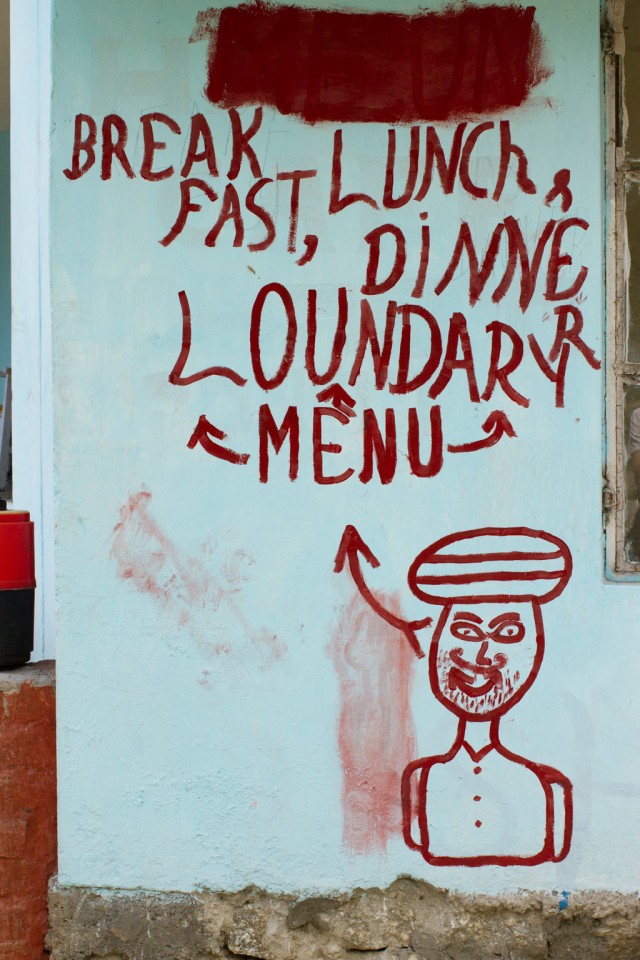 BREAK LUNCh,
FAST, DiNNER
LOUNDARY
MENU